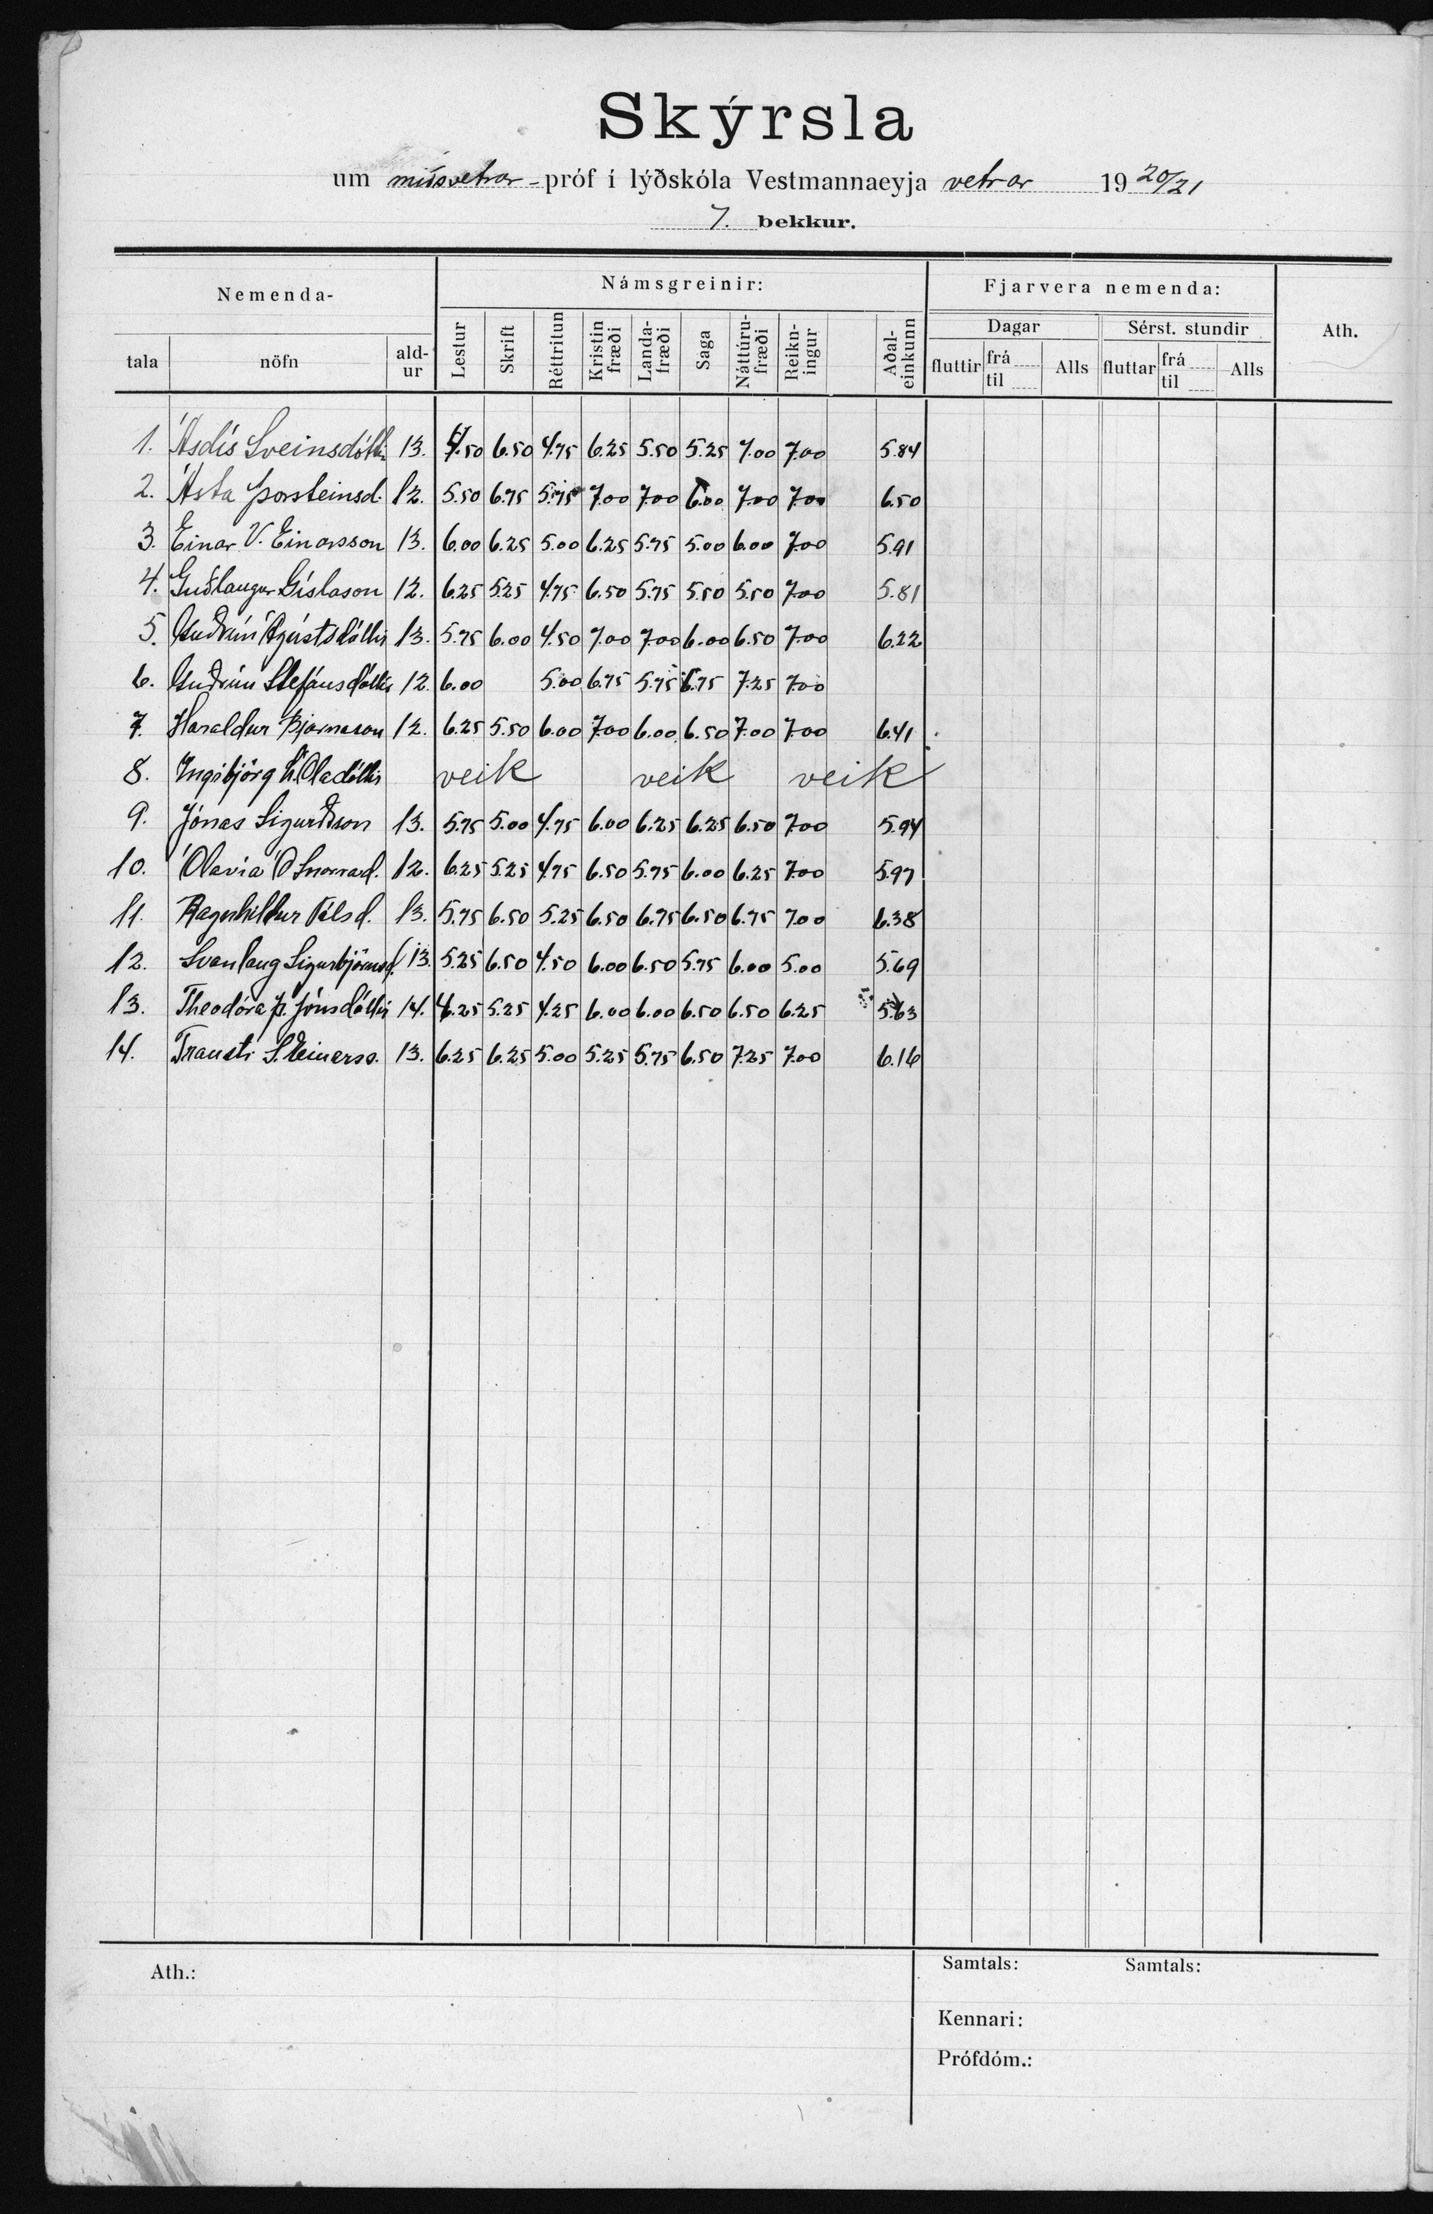 Skýrsla
um miðsvetrar-próf í lýðskóla Vestmannaeyja vetrar 1920/21
7. bekkur.
Nemenda- Námsgreinir: Fjarvera nemenda: Ath.
tala nöfn ald-ur Lestur Skrift Réttritun Kristin fræði Landa-fræði Saga Náttúru-fræði Reikn-ingur Aðal-einkunn Dagar fluttir frá til Alls Sérst. stundir fluttar frá til Alls
1. Ásdís Sveinsdóttir 13. 4.50 6.50 4.75 6.25 5.50 5.25 7.00 7.00 5.84
2. Ásta Þorsteinsd. 12. 5.50 6.75 5.75 7.00 7.00 6.00 7.00 7.00 6.50
3. Einar V. Einarsson 13. 6.00 6.25 5.00 6.25 5.75 5.00 6.00 7.00 5.91
4. Guðlaugur Gíslason 12. 6.25 5.25 4.75 6.50 5.75 5.50 5.50 7.00 5.81
5. Guðrún Ágústsdóttir 13. 5.75 6.00 4.50 7.00 7.00 6.00 6.50 7.00 6.22
6. Guðrún Stefánsdóttir 12. 6.00 5.00 6.75 5.75 6.75 7.25 7.00
7. Haraldur Bjarnason 12. 6.25 5.50 6.00 7.00 6.00 6.50 7.00 7.00 6.41
8. Ingibjörg Ó. Óladóttir veik veik veik
9. Jónas Sigurðsson 13. 5.75 5.00 4.75 6.00 6.25 6.25 6.50 7.00 5.94
10. Ólavía Ó Snorrad. 12. 6.25 5.25 4.75 6.50 5.75 6.00 6.25 7.00 5.97
11. Ragnhildur Pálsd. 13. 5.75 6.50 5.25 6.50 6.75 6.50 6.75 7.00 6.38
12. Svanlaug Sigurbjörnsd. 13. 5.25 6.50 4.50 6.00 6.50 5.75 6.00 5.00 5.69
13. Theodóra Þ. Jónsdóttir 14. 4.25 5.25 4.25 6.00 6.00 6.50 6.50 6.25 5.63
14. Trausti S. Einarss. 13. 6.25 6.25 5.00 5.25 5.75 6.50 7.25 7.00 6.16
Ath.: Samtals: Samtals:
Kennari:
Prófdóm.: